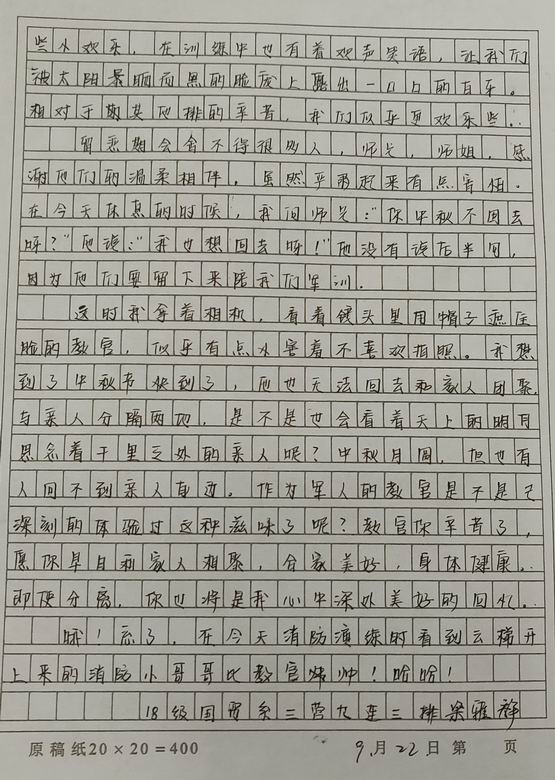 些小欢乐，在训练中也有着欢声笑语，让我们
被太阳暴晒而黑的脸庞上露出一口口的白牙。
相对于期其他排的辛苦，我们似乎更欢乐些。
当然想会舍不得很多人，师兄，师姐，感
谢他们的温柔相伴，虽然平时起来有点害怕。
在今天休息的时候，我问师兄："你中秋不回去
呀？"他说："我也想回去呀！"他没有说后半句，
因为他们要留下来陪我们军训.
这时我拿着相机，看着镜头里用帽子遮住
脸的教官，似乎有点小害羞不喜欢拍照。我想
到了中秋节快到了，他也无法回去和家人团聚，
与亲人分隔两地，是不是也会看着天上的明月
思念着千里之外的亲人呢？中秋月圆，但也有
人回不到亲人身边。作为军人的教官是不是已
深刻的体验过这种滋味了呢？教官你辛苦了，
愿你早日和家人相聚，合家美好，身体健康。
即便分离，你也将是我心中深处美好的回忆。
哦！忘了，在今天消防演练时看到云梯开
上来的消防小哥哥比教官帅！哈哈！
18级国贸系三营九连三排梁雅静
原稿纸20×20=400 9月22日第 页